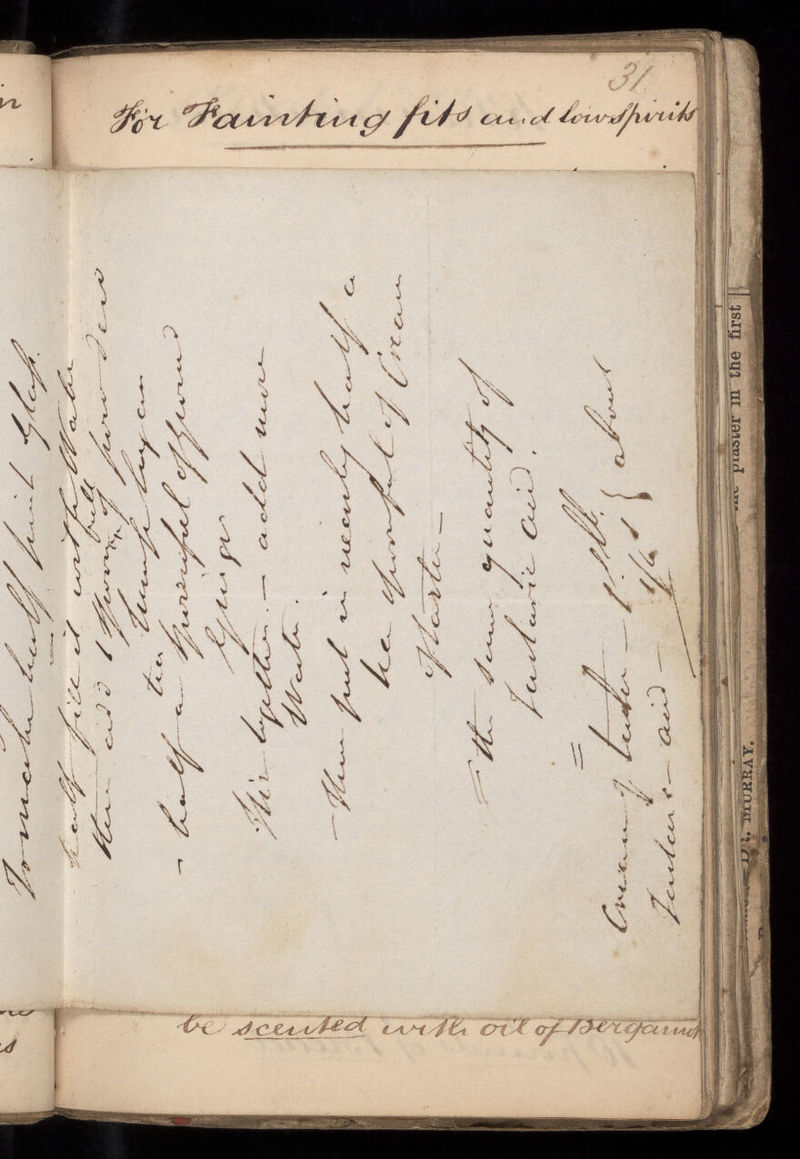 31
For Fainting fits and low spirits
To make half pint Glass
half fill it with Water
then add 1 spoonfull of powdered
lump sugar
- half a tea spoonful of ground
Ginger
Mix together. - add more
Water.
- Then put in nearly half a
tea spoonful of Cream
of Tartar -
= the same quantity of
Tartaric acid.
=
Cream of Tartar -
Tartaric - acid - } about
be scented with oil of Bergamot
plaster in the first
MURRAY.